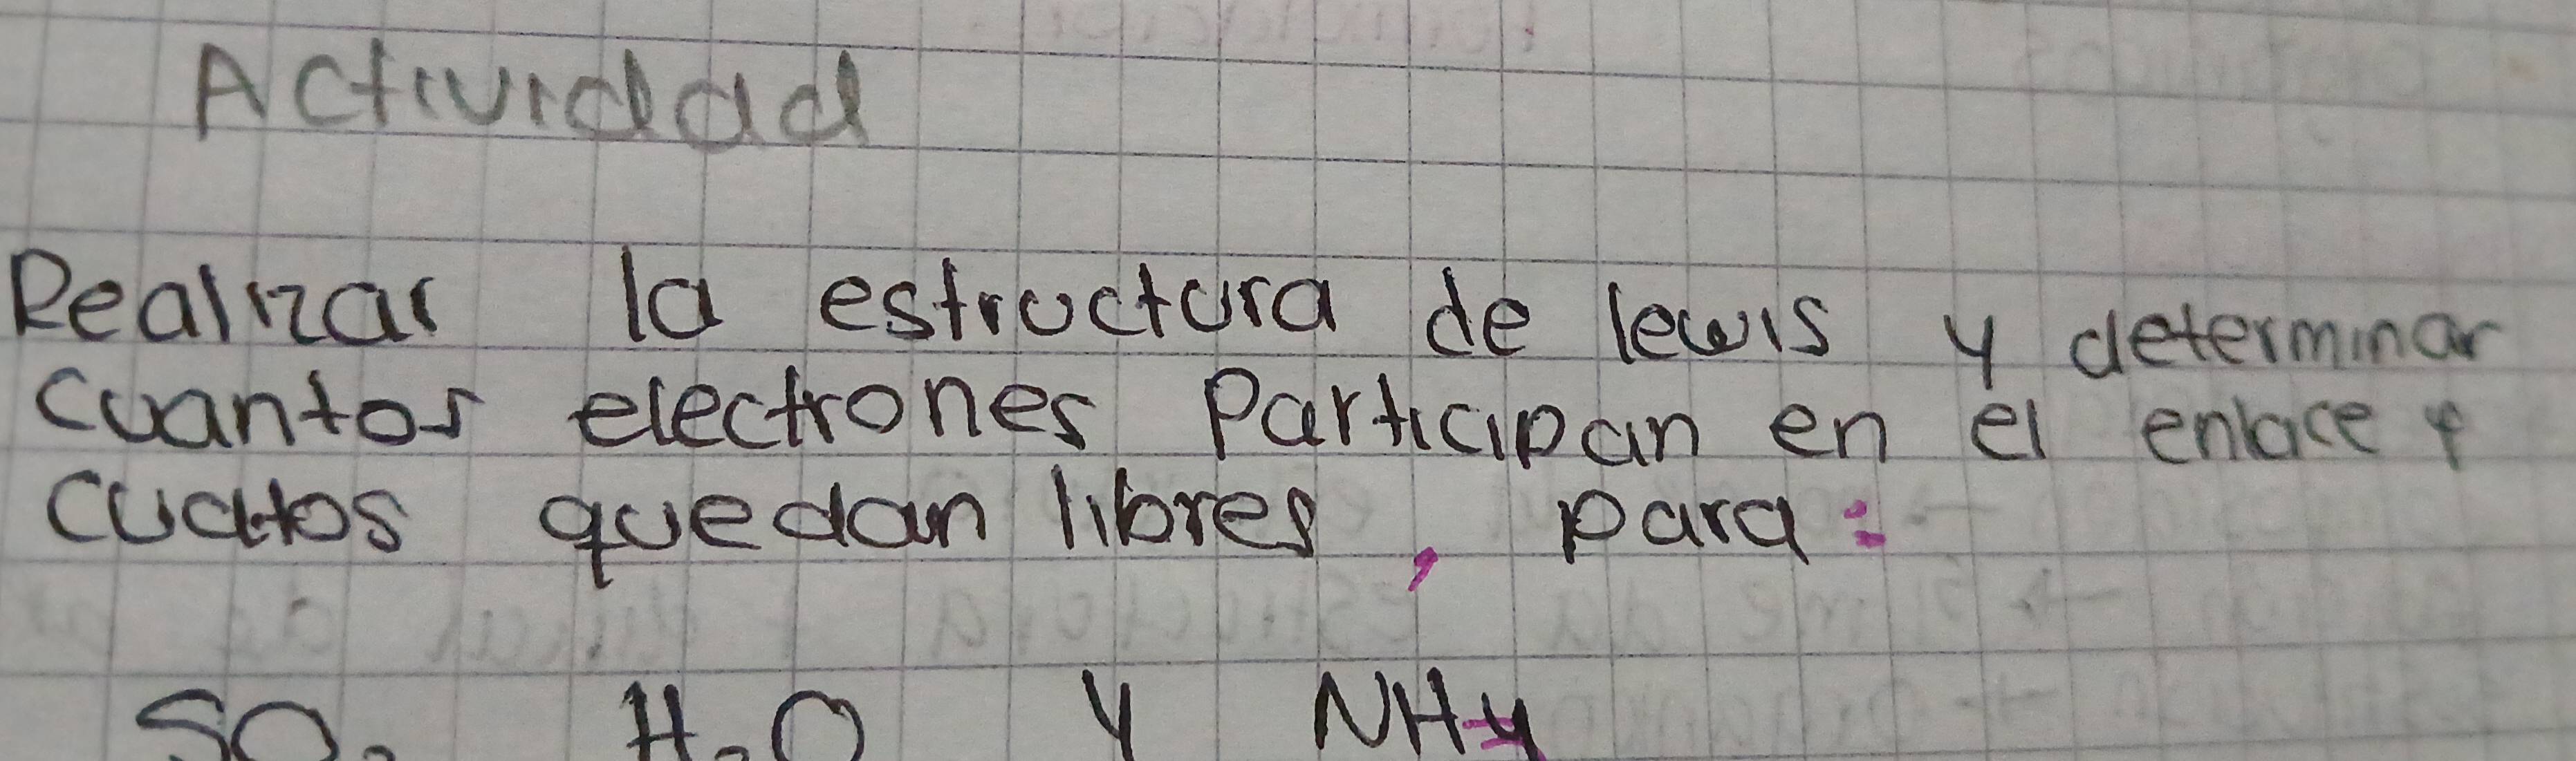 Actividad
Realizar la estructura de lewis y determinar
cuantos electrones Participan en el enlace y
cuatos quedan libres, para:
H₂O y NH4